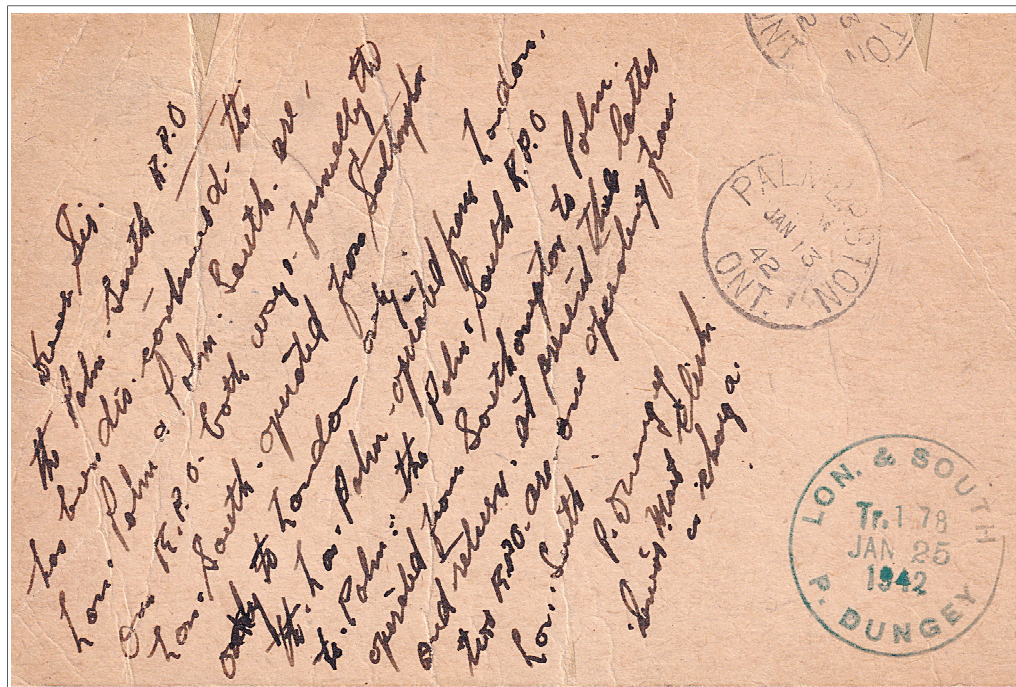 Dear Sir.
the Palm. South R.P.O
has been discontinued - the
Lon. Palm & Palm. South are
One R.P.O. both ways. formally the
Lon. South. operated from Southampton
only to London only.
the Lon. Palm operated from London
to Palm: the Palm. South R.P.O
operated from Southampton to Palm.
and return. at present these latter
two R.P.O. are one operating from
Lon. South
P. Dungey
Mail Clerk
in charge.
PALMERSTON
JAN 13
42
ONT.
TON
ONT
LON. & SOUTH
Tr. 178
JAN 25
1942
P. DUNGEY